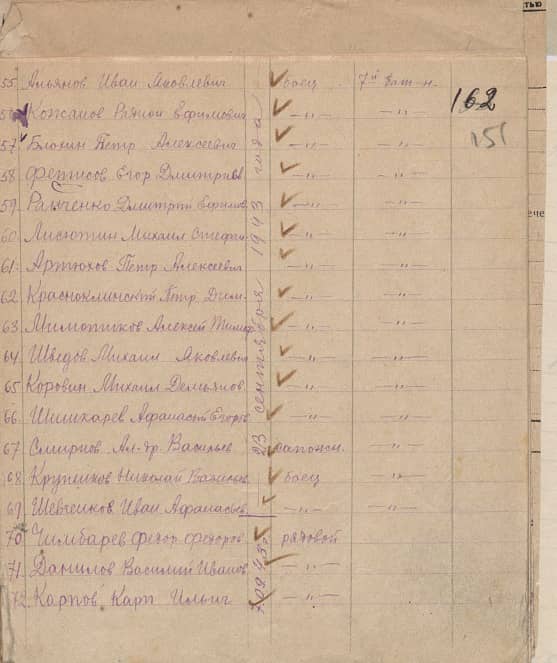 162
151
55 Альянов Иван Яковлевич боец 7й бат-н.
56 Ефимович —„— —„—
57 Блохин Петр Алексеевич —„— —„—
58 Фетисов Егор Дмитриев —„— —„—
59 Радченко Дмитрий Ефимов —„— —„—
60 Лисютин Михаил Стефан. —„— —„—
61 Артюхов Петр Алексеевич —„— —„—
62 Краснокли́нский Петр Дим. —„— —„—
63 Алексей Тимоф —„— —„—
64 Шведов Михаил Яковлевич —„— —„—
65 Коровин Михаил Демьянов. —„— —„—
66 Шишкарев Афанасий Егоров —„— —„—
67 Смирнов Ал-др. Васильев сапожн. —„—
68 Николай боец —„—
69 Шевченков Иван Афанасьев —„— —„—
70 Чимбарев Федор Федоров рядовой
71 Данилов Василий Иванов —„—
72 Карпов Карп Ильич —„—
23 сентября 1943 года